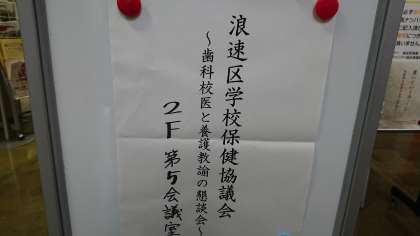 浪速区学校保健協議会
～歯科校医と養護教諭の懇談会～
2F 第5会議室